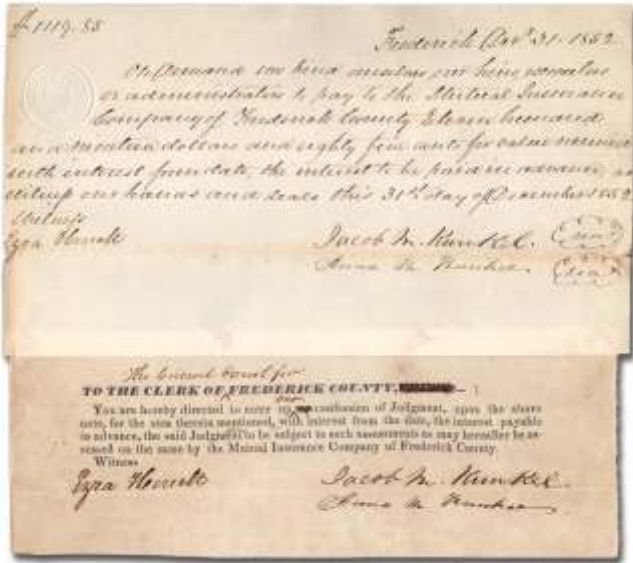 $1119.85
Frederick Decr 31. 1852
On demand we bind ourselves, our heirs, executors
or administrators to pay to the Mutual Insurance
Company of Frederick County Eleven hundred
and nineteen dollars and eighty five cents for value received
with interest from date, the interest to be paid in advance, as
witness our hands and seals this 31st day of December 1852
Witness
Ezra Houck Jacob M. Kunkel. seal
Anna M Kunkel. seal
The Circuit Court for
TO THE CLERK OF FREDERICK COUNTY,
our
You are hereby directed to enter confession of Judgment, upon the above
note, for the sum therein mentioned, with interest from the date, the interest payable
in advance, the said Judgment to be subject to such assessments as may hereafter be as-
sessed on the same by the Mutual Insurance Company of Frederick County.
Witness
Ezra Houck Jacob M. Kunkel
Anna M Kunkel